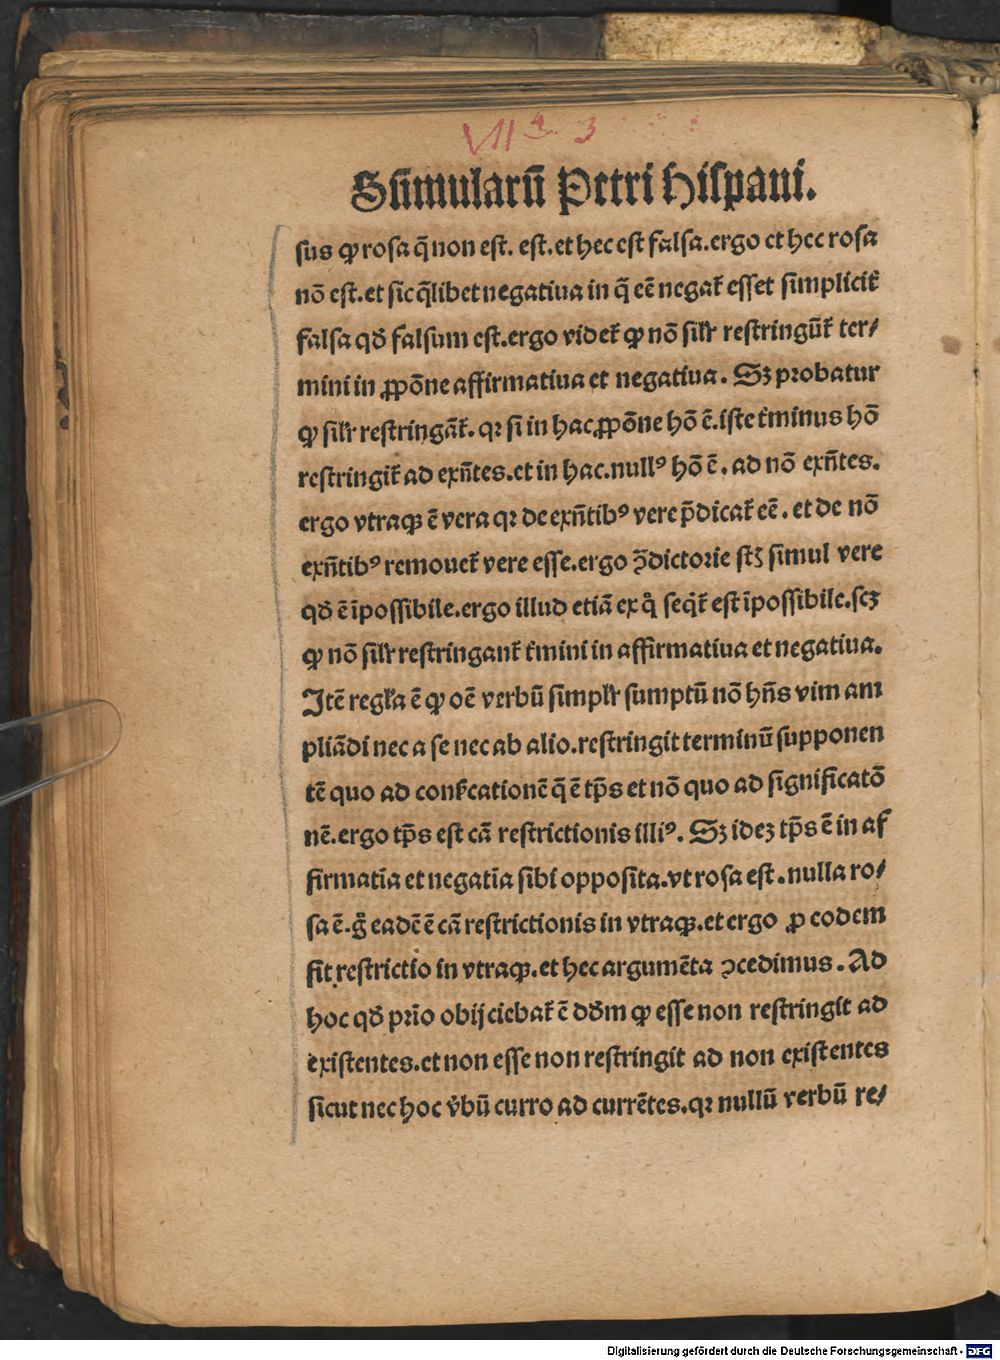 VII 4 3
Sūmularū Petri Hispani.
sus ꝙ rosa q̄ non est. est. et hec est falsa. ergo et hec rosa
nō est. et sic q̄libet negatiua in q̄ eē negať esset simpliciť
falsa qď falsum est. ergo videť ꝙ nō silr restringūť ter⸗
mini in ꝓpōne affirmatiua et negatiua. Sꝫ probatur
ꝙ silr restringāť. qꝛ si in hac ꝓpōne hō ē. iste ťminus hō
restringiť ad exn̄tes. et in hac. nullꝰ hō ē. ad nō exn̄tes.
ergo vtraqꝫ ē vera qꝛ de exn̄tibꝰ vere p̄dicať eē. et de nō
exn̄tibꝰ remoueť vere esse. ergo ꝯdictorie stꝫ simul vere
qď ē īpossibile. ergo illud etiā ex q̊ seq̇ť est īpossibile. scꝫ
ꝙ nō silr restringanť ťmini in affirmatiua et negatiua.
Itē regľa ē ꝙ oē verbū simplr sumptū nō hn̄s vim am
pliādi nec a se nec ab alio. restringit terminū supponen
tē quo ad cōsi̇cationē q̄ ē tp̄s et nō quo ad significatō
nē. ergo tp̄s est cā restrictionis illiꝰ. Sꝫ ideꝫ tp̄s ē in af
firmatīa et negatīa sibi opposita. vt rosa est. nulla ro⸗
sa ē. g̊ eadē ē cā restrictionis in vtraqꝫ. et ergo ꝓ eodem
fit restrictio in vtraqꝫ. et hec argumēta ꝯcedimus. Ad
hoc qď prīo obijciebať ē dďm ꝙ esse non restringit ad
existentes. et non esse non restringit ad non existentes
sicut nec hoc v̓bū curro ad currētes. qꝛ nullū verbū re⸗
Digitalisierung gefördert durch die Deutsche Forschungsgemeinschaft - DFG